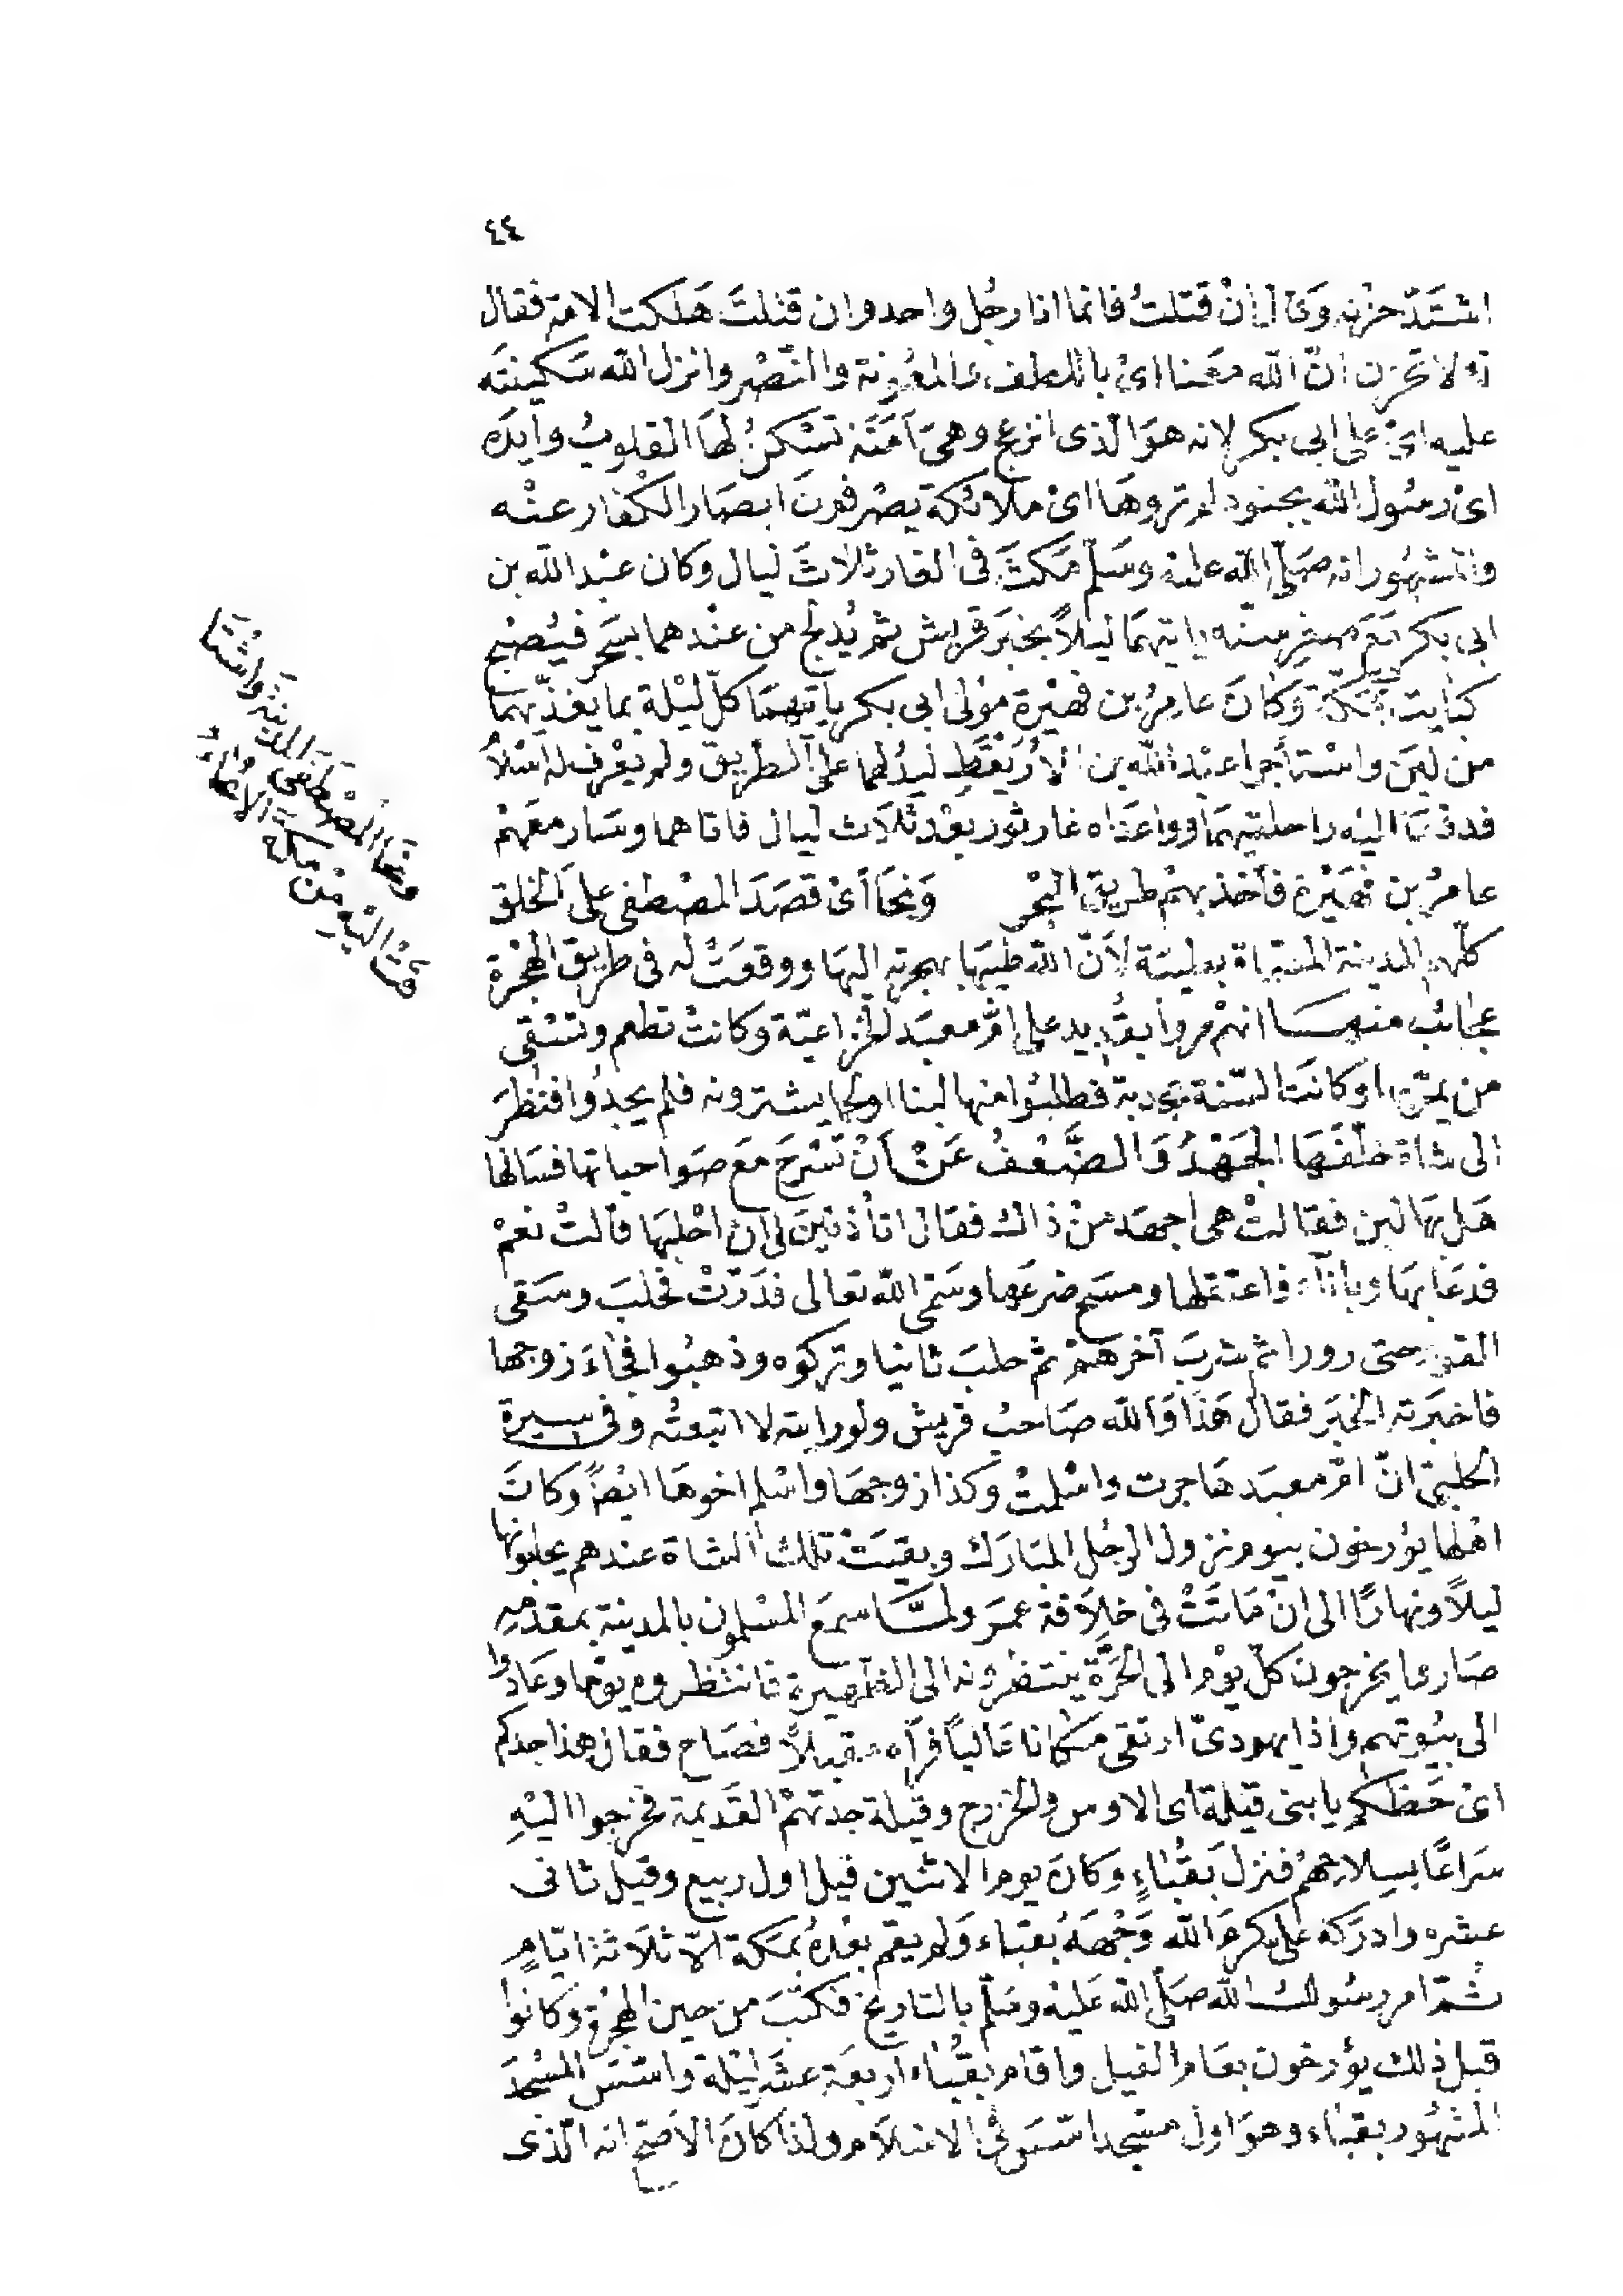 ٤٤
اشتَدّ حزنه وَقال اِنْ قتلتُ فانما انا رجُل واحد وان قتلتَ هَلكت الامة فقال
له لا تحزن انّ الله معَنا اىْ باللطف والمعُونة والنّصْر وانزل الله سَكينتَه
عليه اىْ على ابى بكر لانه هوَ الّذى انزعج وهىَ اَمَنَة تسْكنُ لهَا القلوبُ وايّدَه
اىْ رسُول الله بجنود لم تروهَا اىْ ملائكة يصْرفونَ ابصَار الكفار عنْه
والمشهُور انه صَلّى الله عليْه وسَلم مَكثَ فى الغار ثلاثَ ليال وكان عبْد الله بن
ابى بكر مَعَ صغر سنّه ياتيهمَا ليْلاً بخبَر قريش ثم يُدلج من عنْدهما بسَحَر فيُصْبح
كبايت بمكّة وَكانَ عامرُ بن فهَيْرة موْلى ابى بكر ياتيهمَا كلّ ليْلة بما يغذّيهمَا
من لبَن واسْتأجرا عبْد الله بن الاُرَيْقَطِ ليدُلهما على الطّريق ولم يعْرف له اسْلامٌ
فدفعَا اليْه راحلتيْهمَا وواعَدَاه غار ثور بعْد ثلاَث ليال فاتاهما وسَار معَهمْ
عامرُ بن فهَيْرة فاَخذ بهمْ طريقَ البَحْر وَنحَا أىْ قصَدَ المصْطفى علَى الخلق
كلّهم المدينة المسَمّاة بطيبَة لاَنّ الله طيّبهَا بهجرته اليهَا ووقعَتْ له فى طريق الهجْرة
عجَائبُ منهــا انهمْ مروا بقُدَيد على امّ معبَد الخزاعيّة وكانتْ تطعم وتسْقى
من يمرّ بها وكانت السّنة مجدبة فطلبُوا منها لبنا او لحما يشترونه فلم يجدُوا فنظَر
الى شاة خلّفهَا الجَهْدُ وَالضَّعْفُ عَنْ اَنْ تسْرحَ معَ صَواحباتها فسَالها
هَل بهَا لبن فقالتْ هى اجهَد منْ ذالك فقال اتأذنينَ لى انْ احْلبهَا قالتْ نعَمْ
فدعَا بهَا وباناَء فاعتقلها ومسَح ضرعَها وسَمّى الله تعَالى فدَرّتْ فحلبَ وسَقى
القوم حتى رووا ثم شربَ آخرهمْ ثم حلبَ ثانيا وتركوه وذهبُوا فجاَءَ زوجها
فاخبَرته الخبَر فقال هَذَا وَالله صَاحبُ قريش ولو رايته لاتبعتُه وفى سيرة
الحلبىّ انّ امّ معبَد هَاجرت واسْلمتْ وكذا زوجهَا واسْلم اخوهَا ايْضاً وكانَ
اهْلها يؤرخون بيوم نزول الرجُل المبَارَك وبقيَتْ تلك الشاة عندهم يحلبونها
ليلاً ونهارًا الى انْ مَاتَتْ فى خلاَفة عمَر ولمّــا سمعَ المسْلمون بالمدينة بمقدَمِه
صَاروا يخرجون كلّ يوْم الى الحَرَّة ينتظرُونه الى الظّهيرة فانتظروه يومًا وعَادُوا
الى بيُوتهم واذا يهودىّ ارتقى مكانا عَالياً فرآه مقبلاً فصَاح فقال هذا جدكم
اىْ حَظكمْ يا بنى قيْلة اى الاوس والخزرج وقيْلة جدتهمْ القَديمة فخرجوا اليْهِ
سَراعًا بسِلاحهمْ فنزل بَقُباءٍ وَكانَ يوم الاثنين قيل اول ربيع وقيل ثانى
عشره وادرَكه علىّ كرمَ الله وَجْهَهُ بقبَاء وَلم يقم بعْدهُ بمَكة الاّ ثلاَثة ايّامٍ
ثمّ امر رسُول الله صَلّى الله عَليْه وسَلّم بالتاريخ فكتبَ من حين الهجْرة وَكانوا
قبل ذلك يؤرخون بعَام الفيل واقام بقُبَاء اربعَة عشَر ليْلة واسّسَ المسْجدَ
المشهُور بقبَاء وهوَ اول مسْجد اسّسَ فى الاسْلاَم ولذا كانَ الاَصَحّ انه الّذى
وَنحَا المصْطفى المَدينة واشْتَا
قتْ اليْه منْ مكة الاَنحاءُ